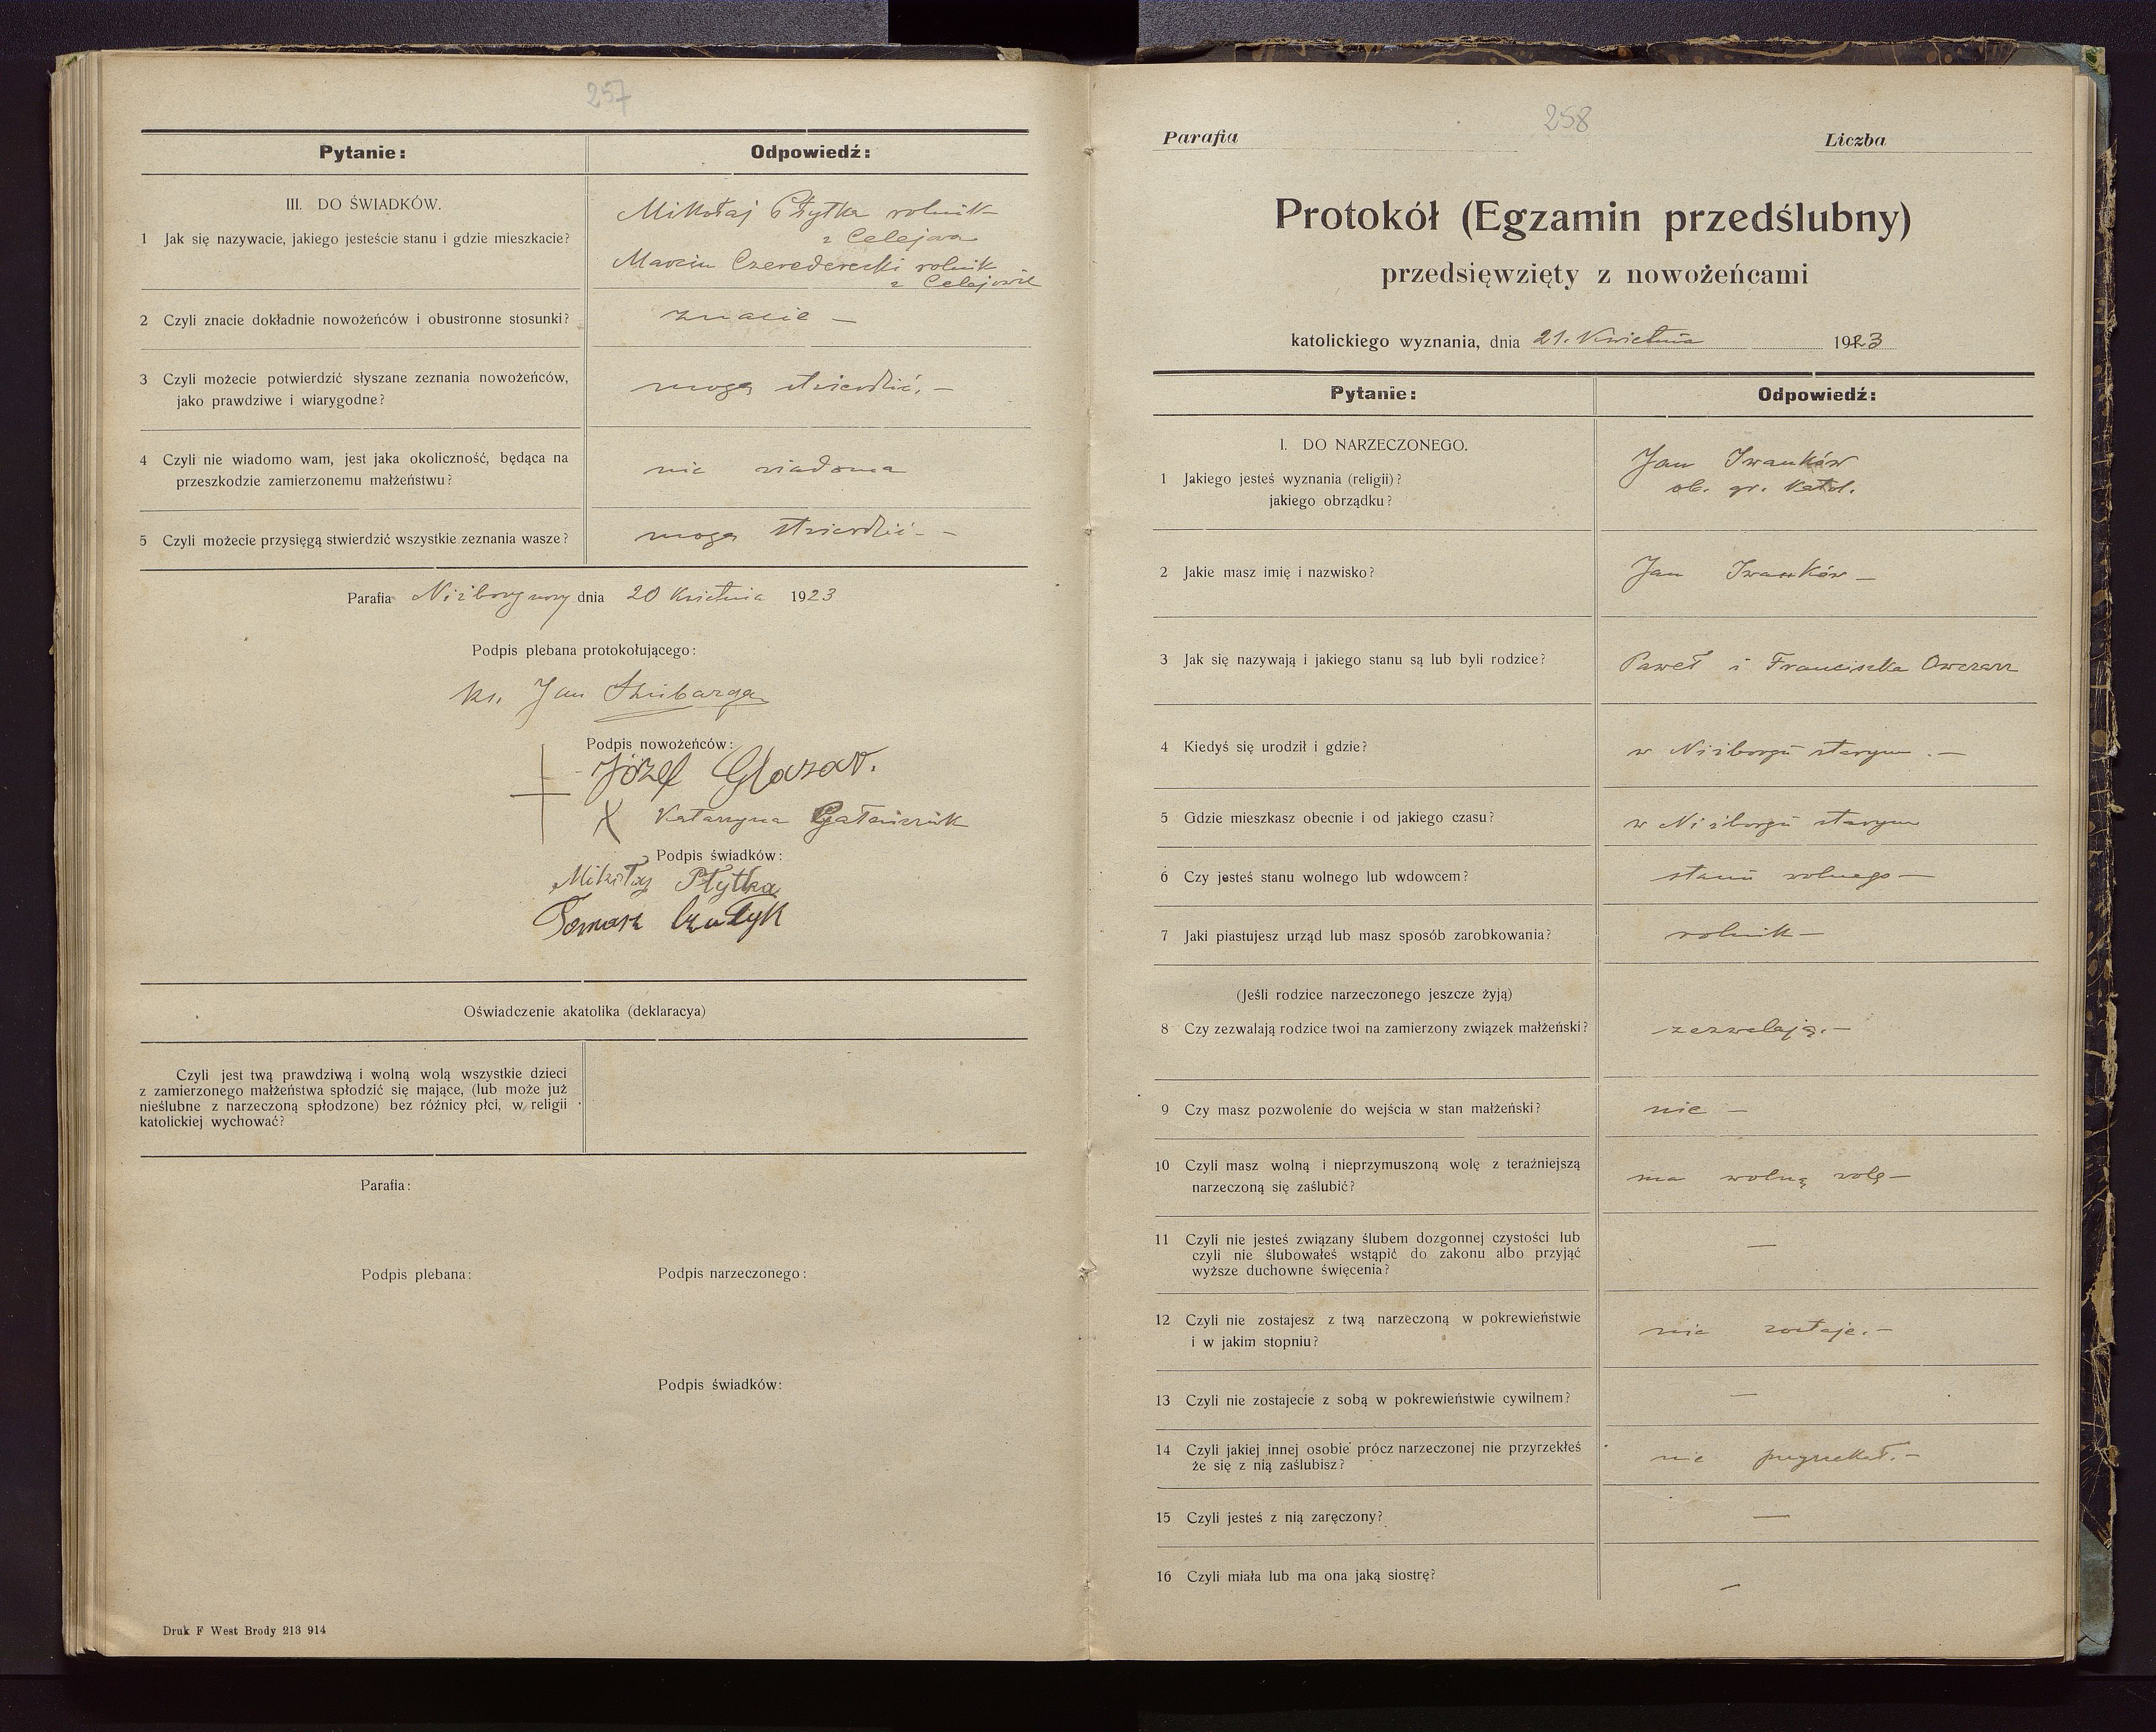 257
Pytanie:
Odpowiedź:
III. DO ŚWIADKÓW.
1 Jak się nazywacie, jakiego jesteście stanu i gdzie mieszkacie?
Mikołaj Płytka rolnik
z Celejowa
Marcin Czerederecki rolnik
z Celejowie
2 Czyli znacie dokładnie nowożeńców i obustronne stosunki?
znacie —
3 Czyli możecie potwierdzić słyszane zeznania nowożeńców,
jako prawdziwe i wiarygodne?
mogą stwierdzić. —
4 Czyli nie wiadomo wam, jest jaka okoliczność, będąca na
przeszkodzie zamierzonemu małżeństwu?
nie wiadoma
5 Czyli możecie przysięgą stwierdzić wszystkie zeznania wasze?
mogą stwierdzić - -
Parafia Niżborg nowy dnia 20 Kwietnia 1923
Podpis plebana protokołującego:
ks. Jan
Podpis nowożeńców:
Józef Glazar.
X Katarzyna
Podpis świadków:
Mikołaj Płytka
Tomasz
Oświadczenie akatolika (deklaracya)
Czyli jest twą prawdziwą i wolną wolą wszystkie dzieci
z zamierzonego małżeństwa spłodzić się mające, (lub może już
nieślubne z narzeczoną spłodzone) bez różnicy płci, w religii
katolickiej wychować?
Parafia:
Podpis plebana:
Podpis narzeczonego:
Podpis świadków:
Druk F West Brody 213 914
258
Parafia
Liczba
Protokół (Egzamin przedślubny)
przedsięwzięty z nowożeńcami
katolickiego wyznania, dnia 21. Kwietnia 1923
Pytanie:
Odpowiedź:
I. DO NARZECZONEGO.
1 Jakiego jesteś wyznania (religii)?
jakiego obrządku?
Jan Iwanków
ob. gr. katol.
2 Jakie masz imię i nazwisko?
Jan Iwanków —
3 Jak się nazywają i jakiego stanu są lub byli rodzice?
Paweł i Franciszka Owczarz
4 Kiedyś się urodził i gdzie?
w Niżborgu starym. —
5 Gdzie mieszkasz obecnie i od jakiego czasu?
w Niżborgu starym
6 Czy jesteś stanu wolnego lub wdowcem?
stanu wolnego —
7 Jaki piastujesz urząd lub masz sposób zarobkowania?
rolnik —
(Jeśli rodzice narzeczonego jeszcze żyją)
8 Czy zezwalają rodzice twoi na zamierzony związek małżeński?
zezwalają. —
9 Czy masz pozwolenie do wejścia w stan małżeński?
nie —
10 Czyli masz wolną i nieprzymuszoną wolę z teraźniejszą
narzeczoną się zaślubić?
ma wolną wolę —
11 Czyli nie jesteś związany ślubem dozgonnej czystości lub
czyli nie ślubowałeś wstąpić do zakonu albo przyjąć
wyższe duchowne święcenia?
—
12 Czyli nie zostajesz z twą narzeczoną w pokrewieństwie
i w jakim stopniu?
nie zostaje. —
13 Czyli nie zostajecie z sobą w pokrewieństwie cywilnem?
—
14 Czyli jakiej innej osobie prócz narzeczonej nie przyrzekłeś
że się z nią zaślubisz?
nie przyrzekał. —
15 Czyli jesteś z nią zaręczony?
—
16 Czyli miała lub ma ona jaką siostrę?
—